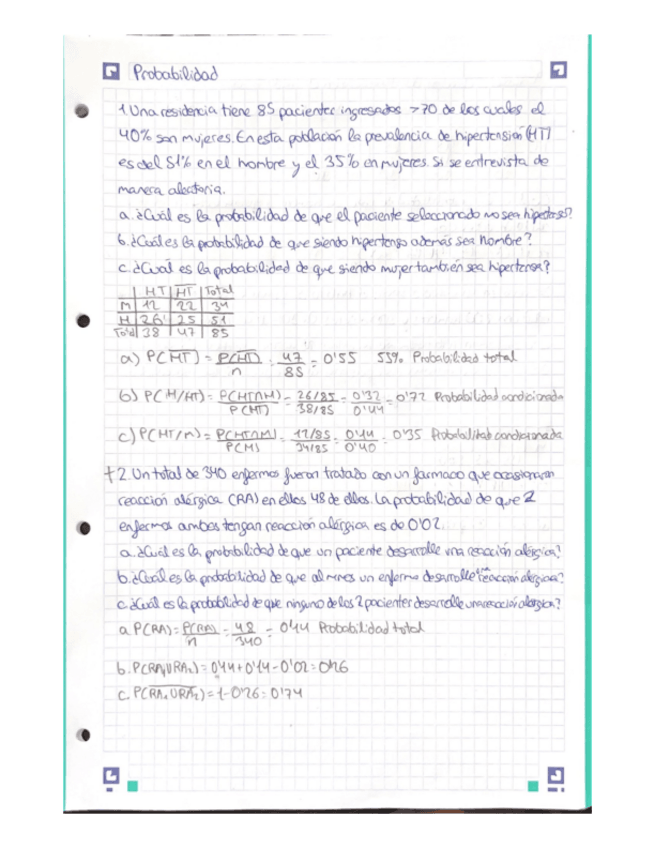 Probabilidad
1. Una residencia tiene 85 pacientes ingresados >70 de los cuales el
40% son mujeres. En esta población la prevalencia de hipertensión (HT)
es del 51% en el hombre y el 35% en mujeres. Si se entrevista de
manera aleatoria.
a. ¿Cuál es la probabilidad de que el paciente seleccionado no sea hipertenso?
b. ¿Cuál es la probabilidad de que siendo hipertenso además sea hombre?
c. ¿Cual es la probabilidad de que siendo mujer también sea hipertensa?
HT HT Total
M 12 22 34
H 26 25 51
Total 38 47 85
a) P(HT) = P(HT) / n = 47 / 85 = 0'55 55% Probabilidad total
b) P(H/HT) = P(HT∩H) / P(HT) = 26/85 / 38/85 = 0'32 / 0'44 = 0'72 Probabilidad condicionada
c) P(HT/M) = P(HT∩M) / P(M) = 12/85 / 34/85 = 0'14 / 0'40 = 0'35 Probabilidad condicionada
2. Un total de 340 enfermos fueron tratado con un farmaco que ocasionaron
reacción alérgica (RA) en ellos 48 de ellos. La probabilidad de que 2
enfermos ambos tengan reacción alérgica es de 0'02.
a. ¿Cuál es la probabilidad de que un paciente desarrolle una reacción alérgica?
b. ¿Cuál es la probabilidad de que al menos un enfermo desarrolle una reacción alérgica?
c. ¿Cuál es la probabilidad de que ninguno de los 2 pacientes desarrolle una reacción alérgica?
a. P(RA) = P(RA) / n = 48 / 340 = 0'14 Probabilidad total
b. P(RA₁URA₂) = 0'14 + 0'14 - 0'02 = 0'26
c. P(RA₁URA₂) = 1 - 0'26 = 0'74